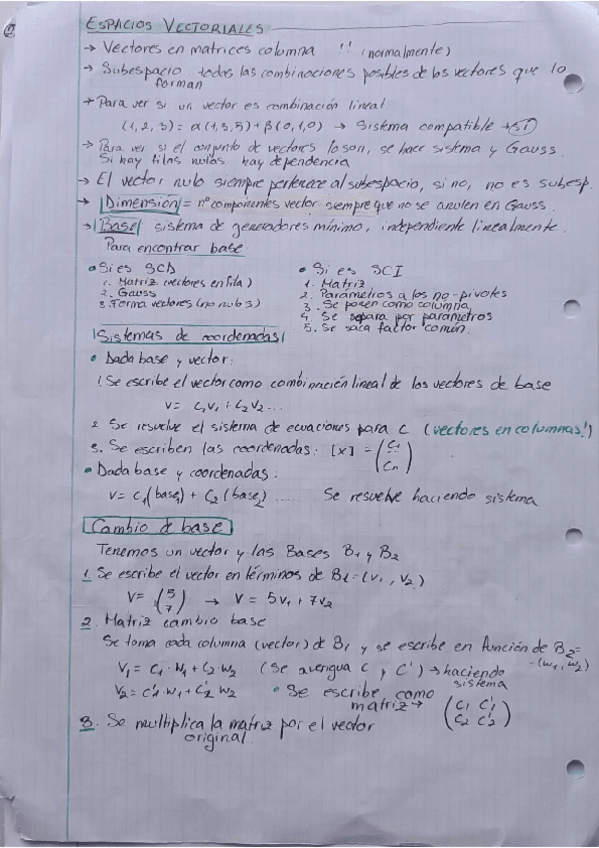 ESPACIOS VECTORIALES
→ Vectores en matrices columna !! (normalmente)
→ Subespacio: todas las combinaciones posibles de los vectores que lo
forman
→ Para ver si un vector es combinación lineal:
(1,2,3) = α(1,3,5) + β(0,1,0) → Sistema compatible → SÍ
→ Para ver si el conjunto de vectores lo son, se hace sistema y Gauss.
Si hay filas nulas hay dependencia
→ El vector nulo siempre pertenece al subespacio, si no, no es subesp.
→ Dimensión = nº componentes vector siempre que no se anulen en Gauss.
→ Base sistema de generadores mínimo, independiente linealmente.
Para encontrar base:
• Si es SCD
1. Matriz (vectores en fila)
2. Gauss
3. Forma vectores (no nulos)
• Si es SCI
1. Matriz
2. Parámetros a los no-pivotes
3. Se ponen como columna
4. Se separa por parámetros
5. Se saca factor común.
Sistemas de coordenadas
• Dada base y vector:
1. Se escribe el vector como combinación lineal de los vectores de base
v = c₁v₁ + c₂v₂ ...
2. Se resuelve el sistema de ecuaciones para c (vectores en columnas!)
3. Se escriben las coordenadas: [x] = (c₁ cₙ)
• Dada base y coordenadas:
v = c₁(base₁) + c₂(base₂) .... Se resuelve haciendo sistema
Cambio de base
Tenemos un vector y las Bases B₁ y B₂
1. Se escribe el vector en términos de B₁=(v₁, v₂)
v = (5 7) → v = 5v₁ + 7v₂
2. Matriz cambio base
Se toma cada columna (vector) de B₁ y se escribe en función de B₂=
(w₁, w₂)
v₁ = c₁ · w₁ + c₂ · w₂ (se averigua c y c') → haciendo
sistema
v₂ = c'₁ · w₁ + c'₂ w₂ • Se escribe como
matriz → (c₁ c'₁ c₂ c'₂)
3. Se multiplica la matriz por el vector
original.